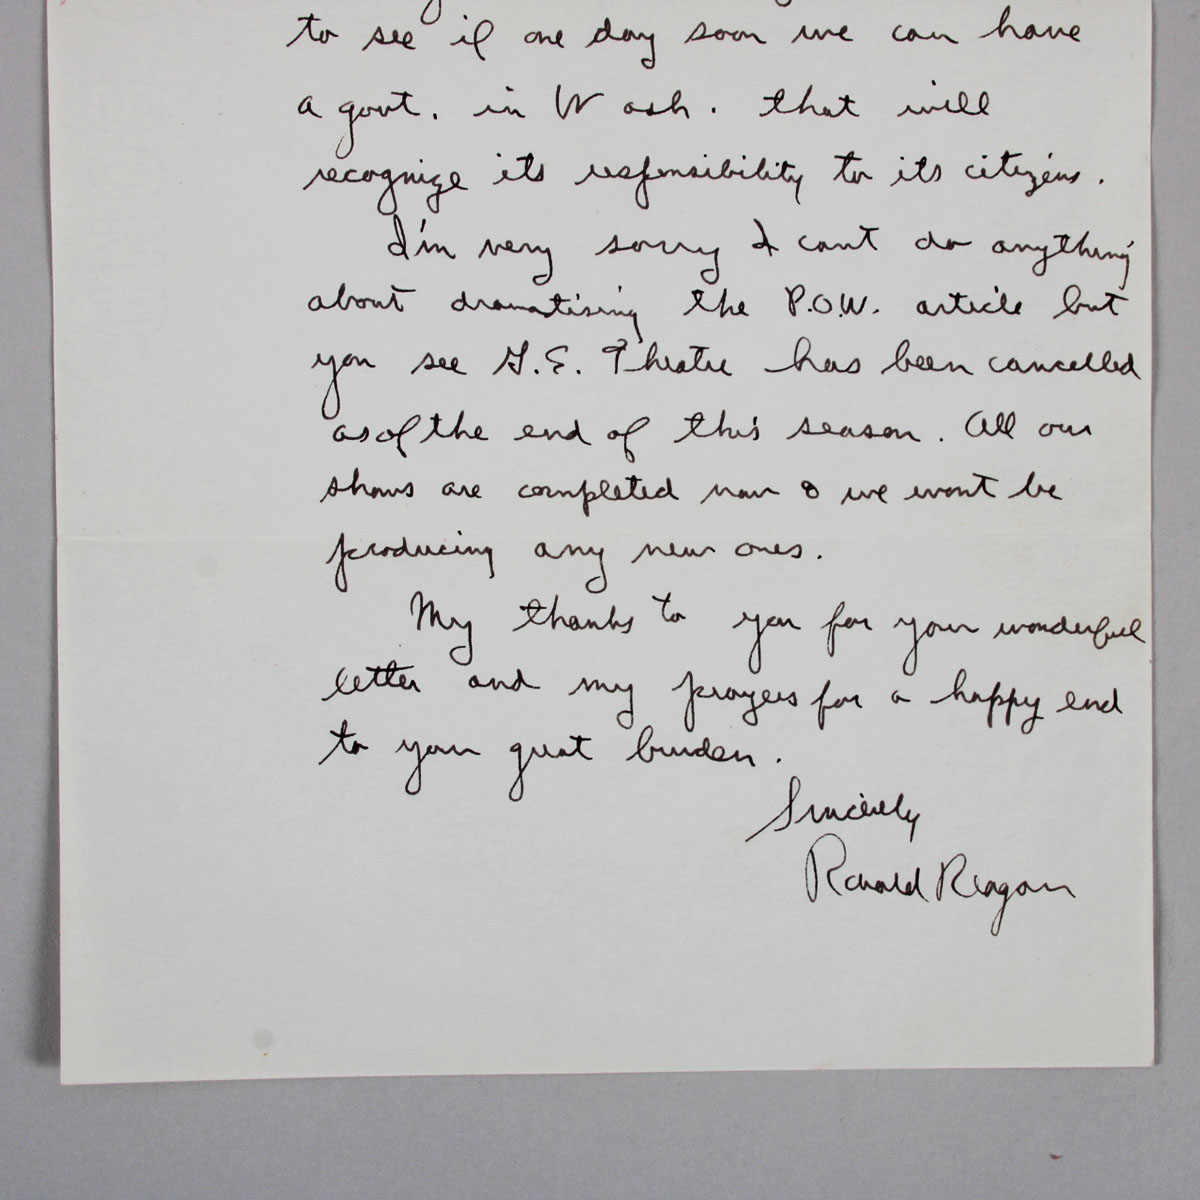 to see if one day soon we can have
a govt. in Wash. that will
recognize its responsibility to its citizens.
I'm very sorry I cant do anything
about dramatising the P.O.W. article but
you see G.E. Theatre has been cancelled
as of the end of this season. All our
shows are completed now & we wont be
producing any new ones.
My thanks to you for your wonderful
letter and my prayers for a happy end
to your great burden.
Sincerely
Ronald Reagan